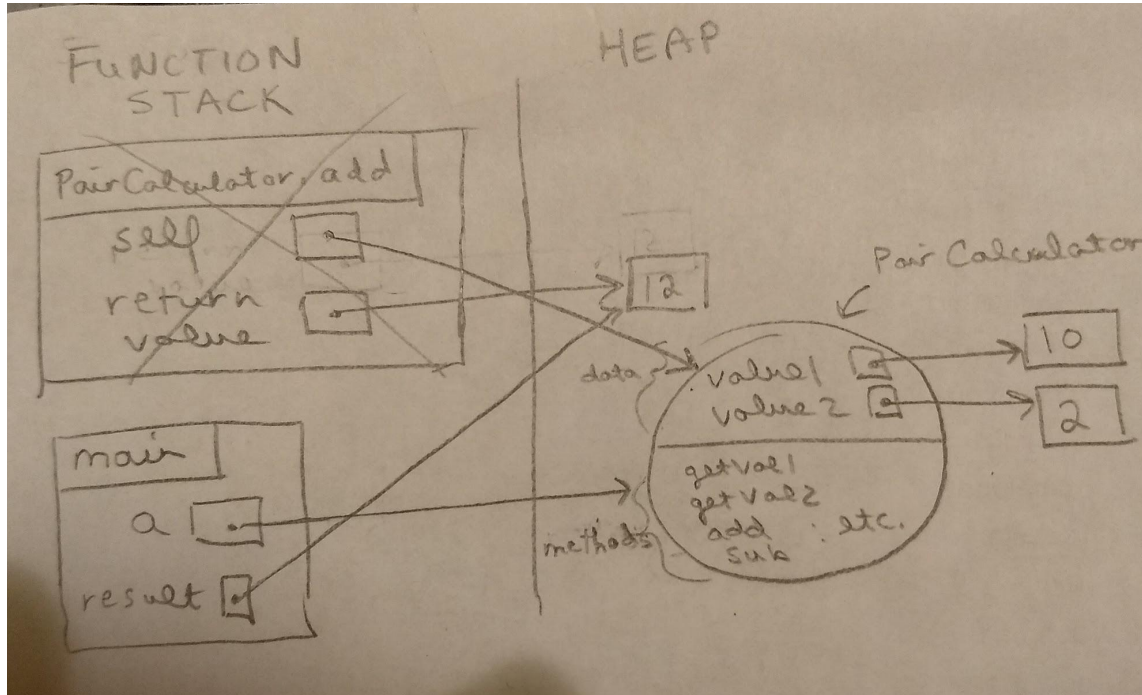 FUNCTION
STACK
HEAP
PairCalculator.add
self
return
value
12
Pair Calculator
data
value1
value2
10
2
main
a
result
methods
getVal1
getVal2
add : etc.
sub